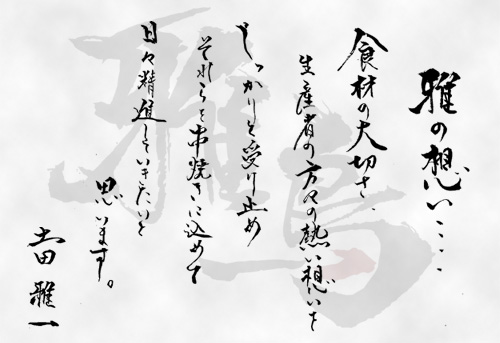 雅の想い‥‥
食材の大切さ、
生産者の方々の熱い想いを
しっかりと受け止め
それらを串焼きに込めて
日々精進していきたいと
思います。
吉田雅一
雅鳥